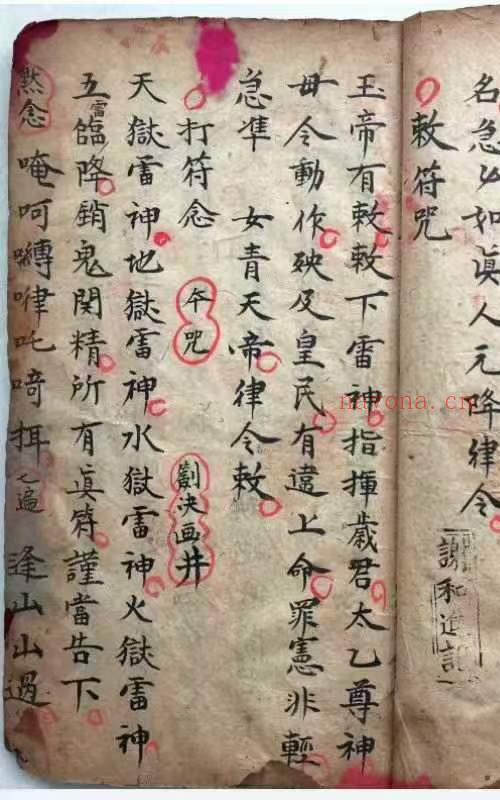 名急急如真人元降律令
敕符咒
玉帝有敕敕下雷神指揮歲君太乙尊神
毋令動作殃及皇民有違上命罪憲非輕
急準 女青天帝律令敕
打符念 本咒 劃決画井
天獄雷神地獄雷神水獄雷神火獄雷神
五雷臨降銷鬼関精所有真符謹當告下
默念 唵呵嚩㗚吒㗨挕七遍 逢山山過
謝和進記
nayona.cn